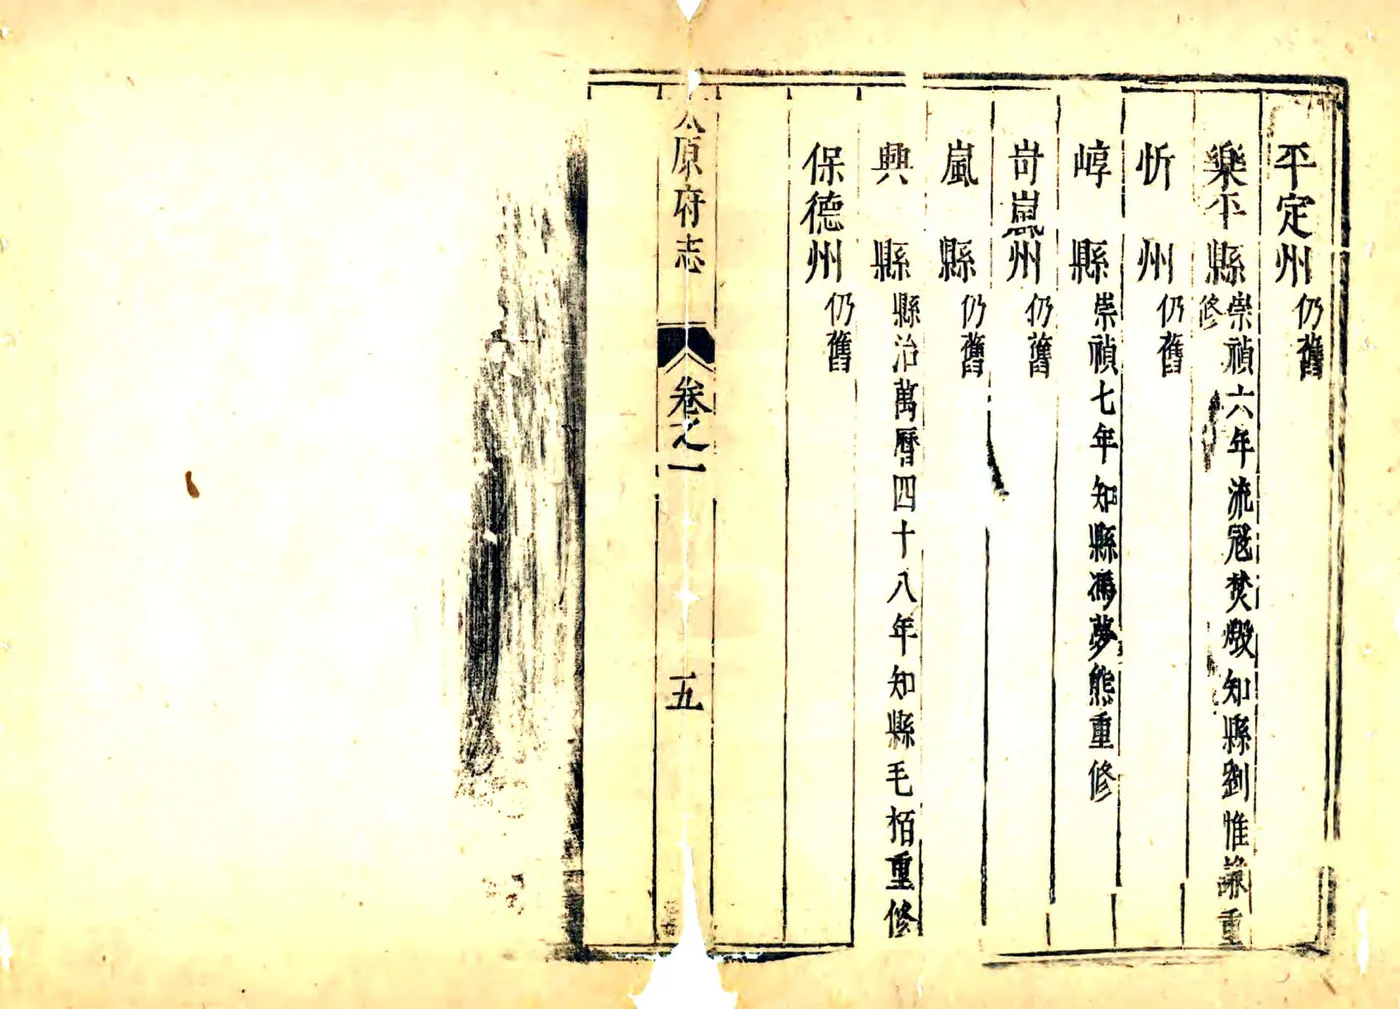 平定州仍舊
樂平縣崇禎六年流寇焚燬知縣劉惟謙重修
忻州仍舊
崞縣崇禎七年知縣馮夢熊重修
岢嵐州仍舊
嵐縣仍舊
興縣縣治萬曆四十八年知縣毛栢重修
保德州仍舊
太原府志 卷之一 五